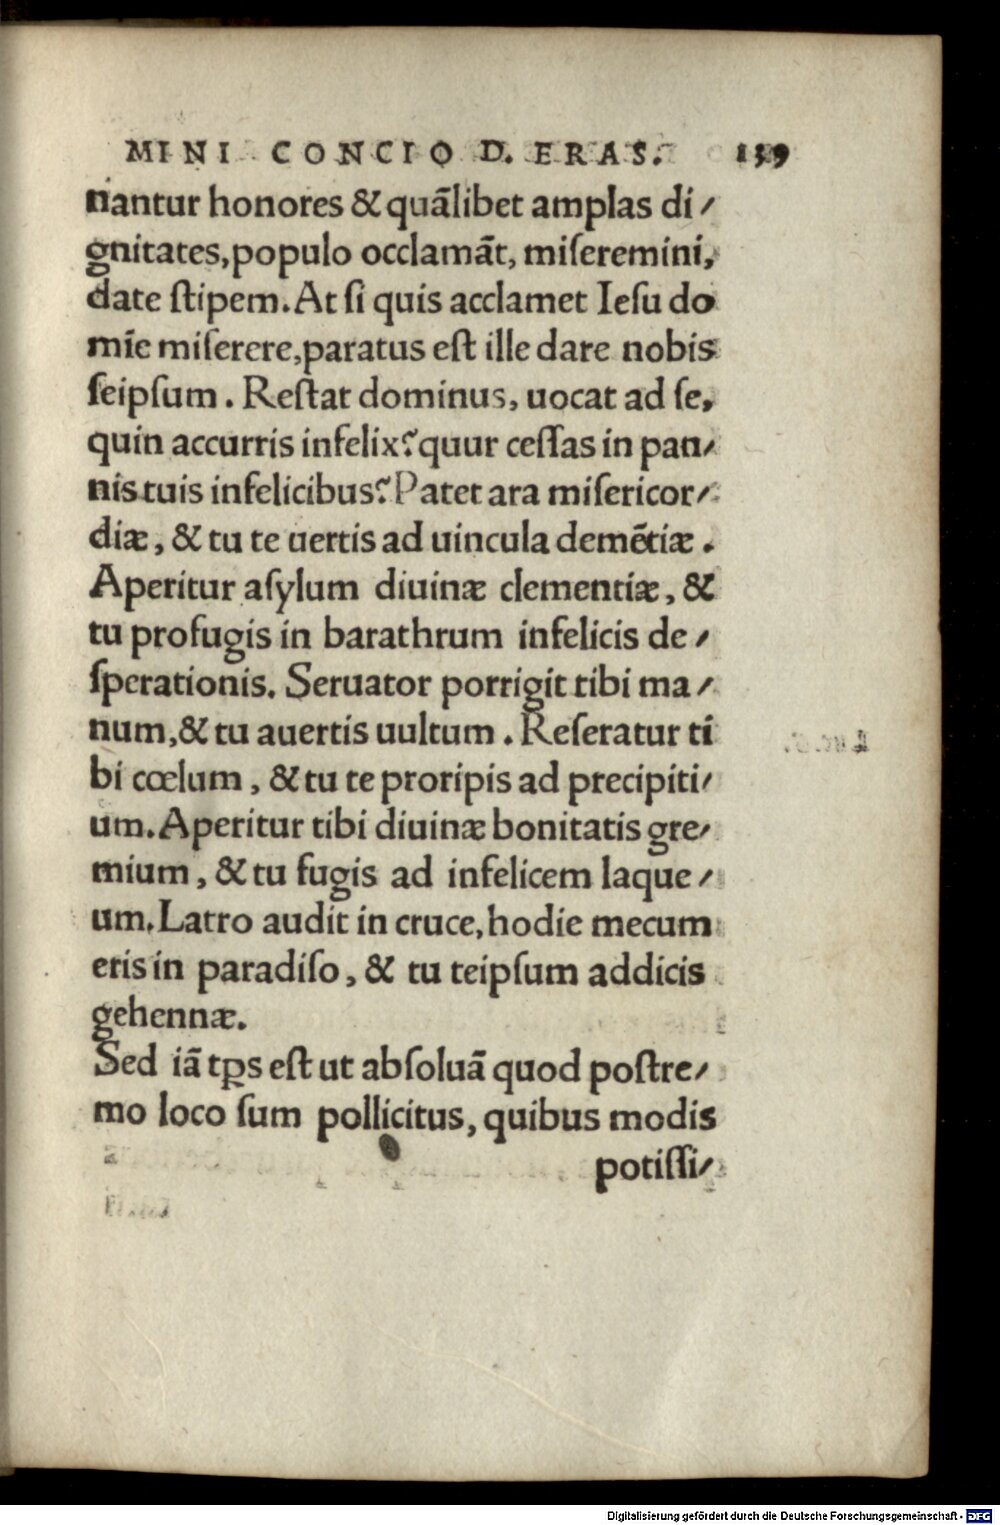 MINI CONCIO D. ERAS. 159
nantur honores & quãlibet amplas di⸗
gnitates, populo occlamãt, miſeremini,
date ſtipem. At ſi quis acclamet Ieſu do
mĩe miſerere, paratus eſt ille dare nobis
ſeipſum. Reſtat dominus, uocat ad ſe,
quin accurris infelix? quur ceſſas in pan⸗
nis tuis infelicibus? Patet ara miſericor⸗
diæ, & tu te uertis ad uincula demẽtiæ.
Aperitur aſylum diuinæ clementiæ, &
tu profugis in barathrum infelicis de⸗
ſperationis. Seruator porrigit tibi ma⸗
num, & tu auertis uultum. Reſeratur ti
bi cœlum, & tu te proripis ad precipiti⸗
um. Aperitur tibi diuinæ bonitatis gre⸗
mium, & tu fugis ad infelicem laque⸗
um. Latro audit in cruce, hodie mecum
eris in paradiſo, & tu teipſum addicis
gehennæ.
Sed iã tꝑs eſt ut abſoluã quod poſtre⸗
mo loco ſum pollicitus, quibus modis
potiſſi⸗
Digitalisierung gefördert durch die Deutsche Forschungsgemeinschaft - DFG